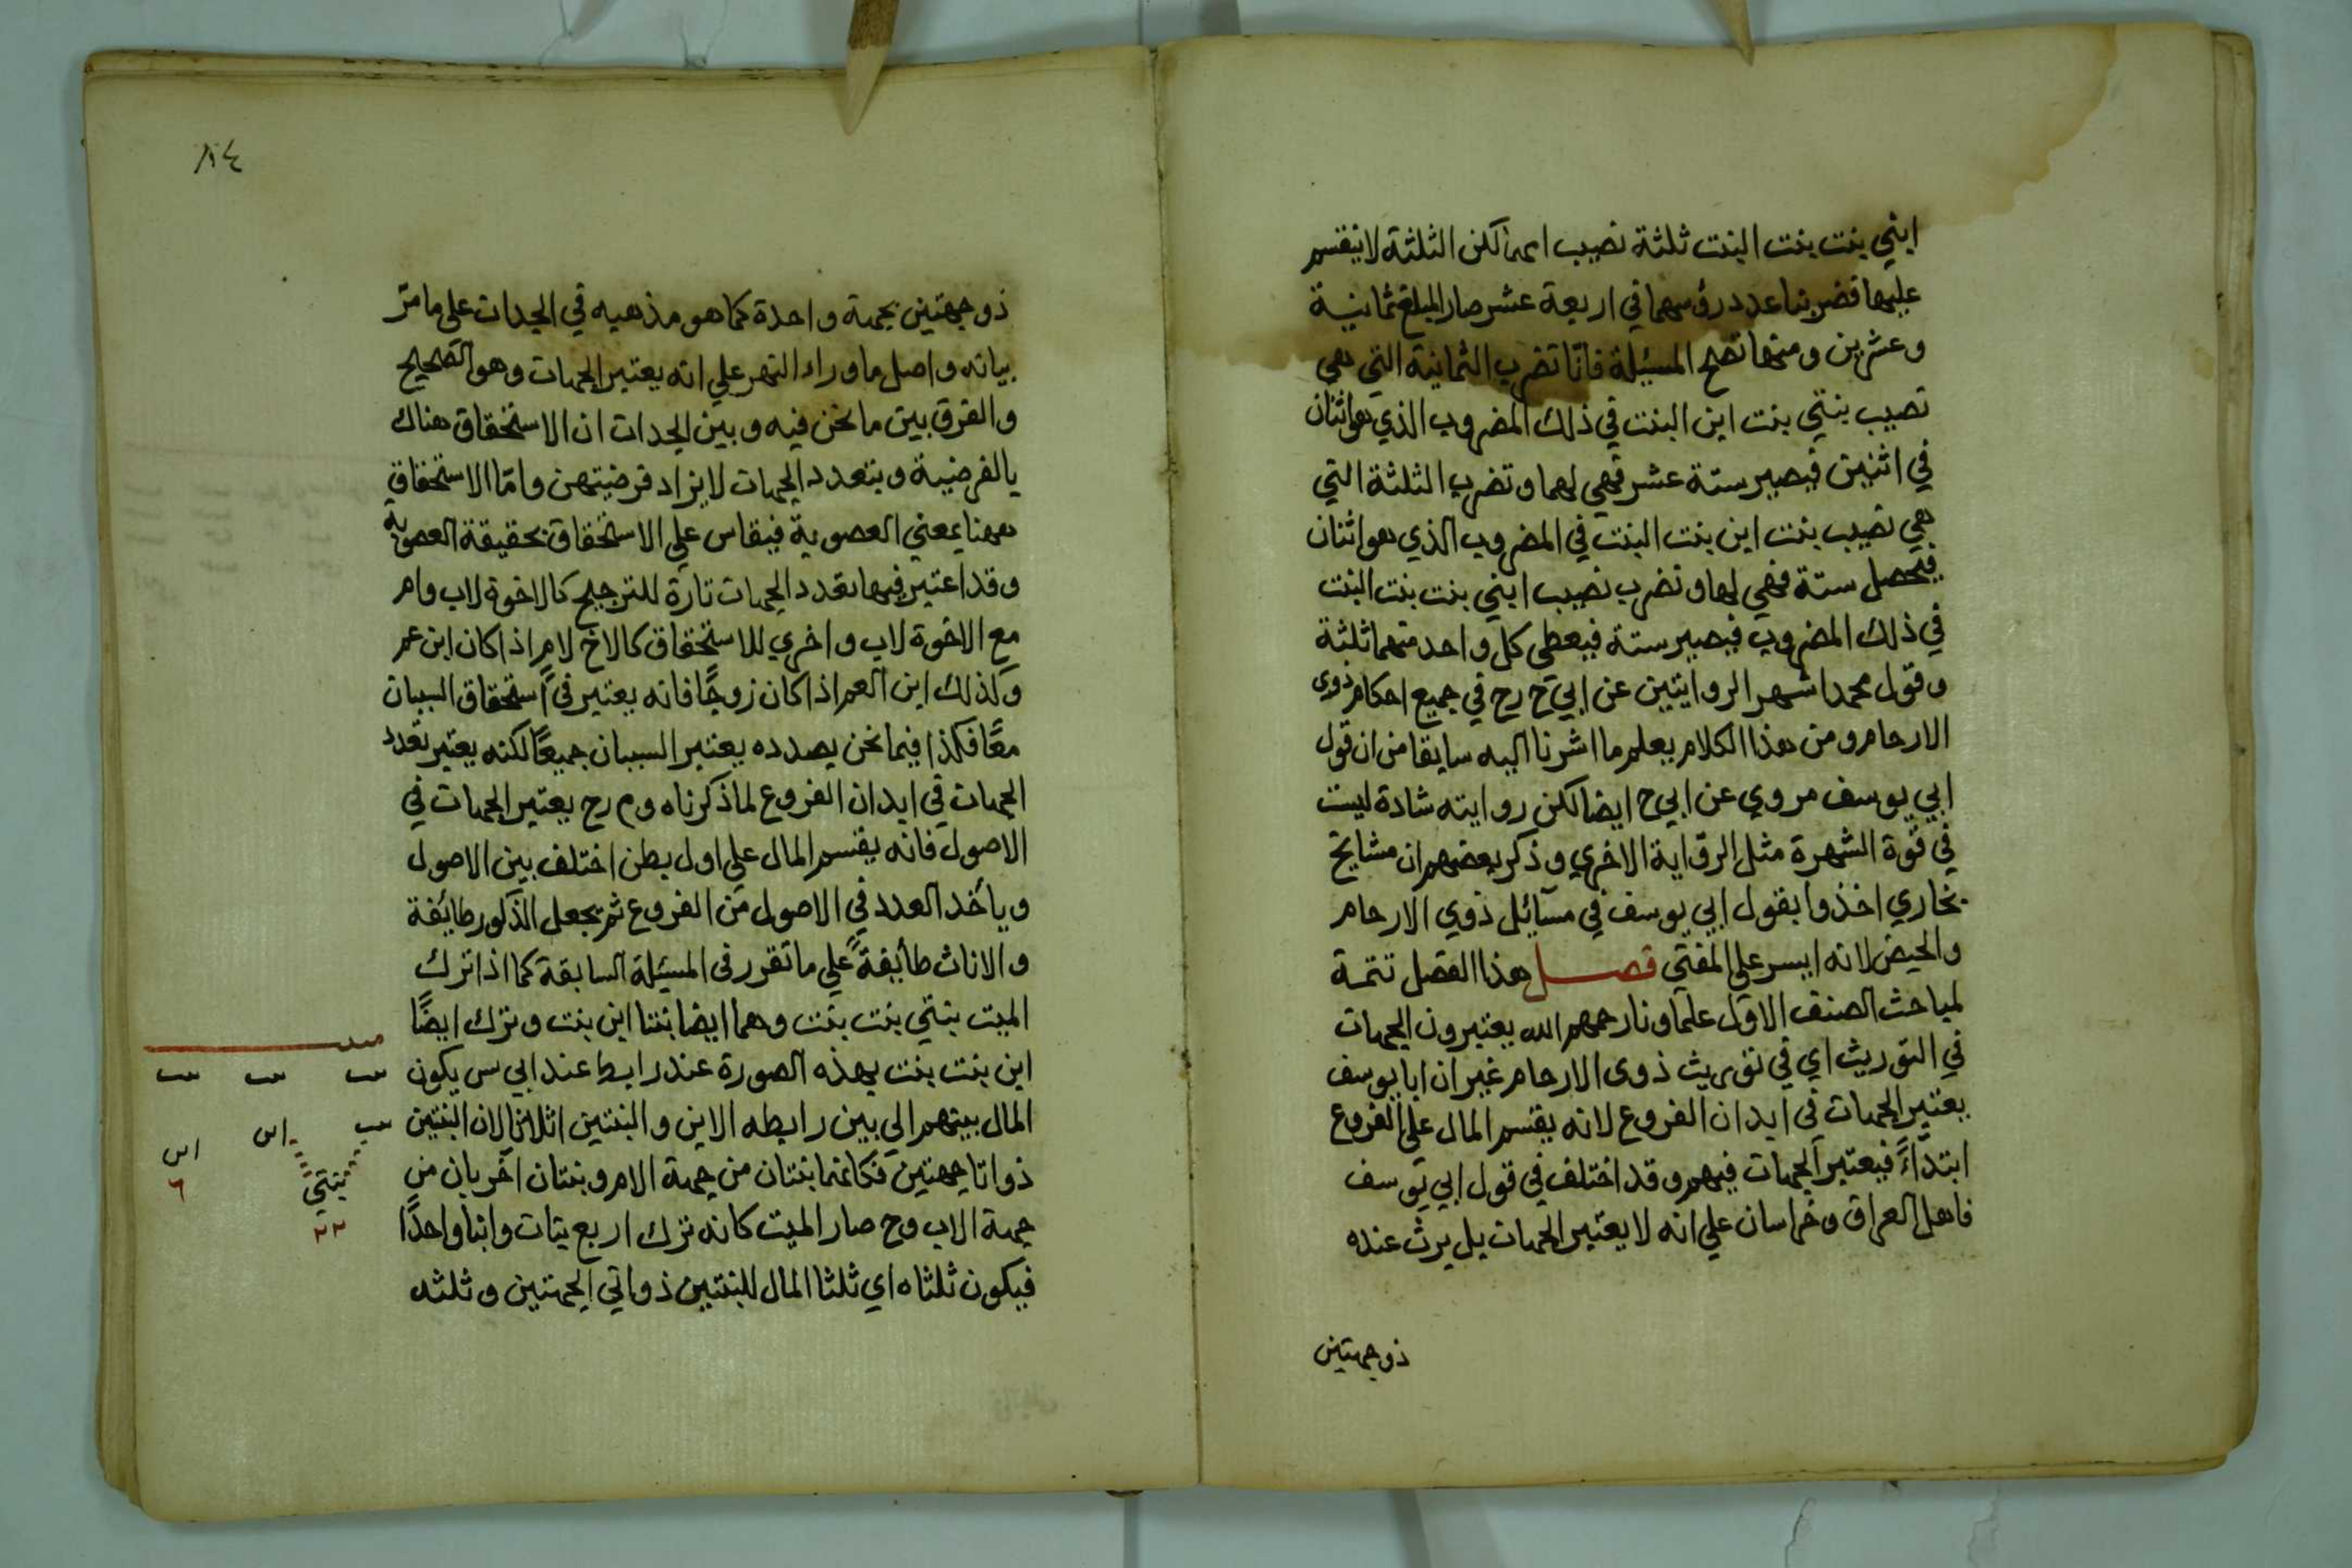 ابني بنت بنت البنت ثلثة نصيب امهما لكن الثلثة لا ينقسم
عليهما فضربنا عدد رؤسهما في اربعة عشر صار المبلغ ثمانية
وعشرين ومنها تصح المسئلة فانا تضرب الثمانية التي هي
نصيب بنتي بنت ابن البنت في ذلك المضروب الذي هو اثنان
في اثنين فيصير ستة عشر فهي لهما وتضرب الثلثة التي
هي نصيب بنت ابن بنت البنت في المضروب الذي هو اثنان
فيحصل ستة فهي لها وتضرب نصيب ابني بنت بنت البنت
في ذلك المضروب فيصير ستة فيعطى كل واحد منهما ثلثة
وقول محمد اشهر الروايتين عن ابي ح رح في جميع احكام ذوى
الارحام ومن هذا الكلام يعلم ما اشرنا اليه سابقا من ان قول
ابي يوسف مروي عن ابي ح ايضا لكن روايته شادة ليست
في قوة الشهرة مثل الرواية الاخري وذكر بعضهم ان مشايخ
بخاري اخذوا بقول ابي يوسف في مسآئل ذوي الارحام
والحيض لانه ايسر على المفتي فصل هذا الفصل تتمة
لمباحث الصنف الاول علماونا رحمهم الله يعتبرون الجهات
في التوريث اي في توريث ذوى الارحام غير ان ابا يوسف
يعتبر الجهات في ابدان الفروع لانه يقسم المال على الفروع
ابتدآءً فيعتبر الجهات فيهم وقد اختلف في قول ابي يوسف
فاهل العراق وخراسان علي انه لا يعتبر الجهات بل يرث عنده
ذو جهتين
١٨٤
ذو جهتين بجهة واحدة كما هو مذهبه في الجدات على ما مرّ
بيانه واصل ما وراء النهر علي انه يعتبر الجهات وهو الصحيح
والفرق بين ما نحن فيه وبين الجدات ان الاستحقاق هناك
بالفرضية وبتعدد الجهات لا يزاد فرضيتهن وامّا الاستحقاق
ههنا بمعني العصوبة فيقاس علي الاستحقاق بحقيقة العصوبة
وقد اعتبر فيها تعدد الجهات تارة للترجيح كالاخوة لاب وام
مع الاخوة لاب واخري للاستحقاق كالاخ لام اذا كان ابن عم
وكذلك ابن العم اذا كان زوجًا فانه يعتبر في استحقاق السببان
معًا فكذا فيما نحن بصدده يعتبر السببان جميعًا لكنه يعتبر تعدد
الجهات في ابدان الفروع لما ذكرناه وم رح يعتبر الجهات في
الاصول فانه يقسم المال علي اول بطن اختلف بين الاصول
ويأخد العدد في الاصول من الفروع ثم يجعل الذكور طايفة
والاناث طأيفةً علي ما تقرر في المسئلة السابقة كما اذا ترك
الميت بنتي بنت بنت وهما ايضا بنتا ابن بنت وترك ايضًا
ابن بنت بنت بهذه الصورة عند رابط عند ابي س يكون
المال بينهم الي بين رابطه الابن والبنتين اثلاثا لان البنتين
ذواتا جهتين فكانهما بنتان من جهة الام وبنتان اخريان من
جهة الاب وح صار الميت كانه ترك اربع بنات وابنا واحدًا
فيكون ثلثاه اي ثلثا المال للبنتين ذواتي الجهتين وثلثه
بنت بنت بنت
بنت ابن ابن
بنتي
٢٢
٦